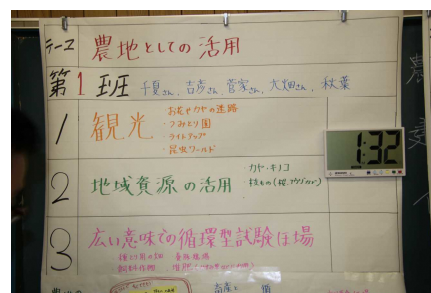 テーマ 農地としての活用
第1班 千夏さん、吉彦さん、菅家さん、大畑さん、秋葉
1 観光 お花やカヤの迷路
・つみとり園
・ライトアップ
・昆虫ワールド
1:32
2 地域資源の活用 カヤ・キノコ
3 広い意味での循環型試験ほ場